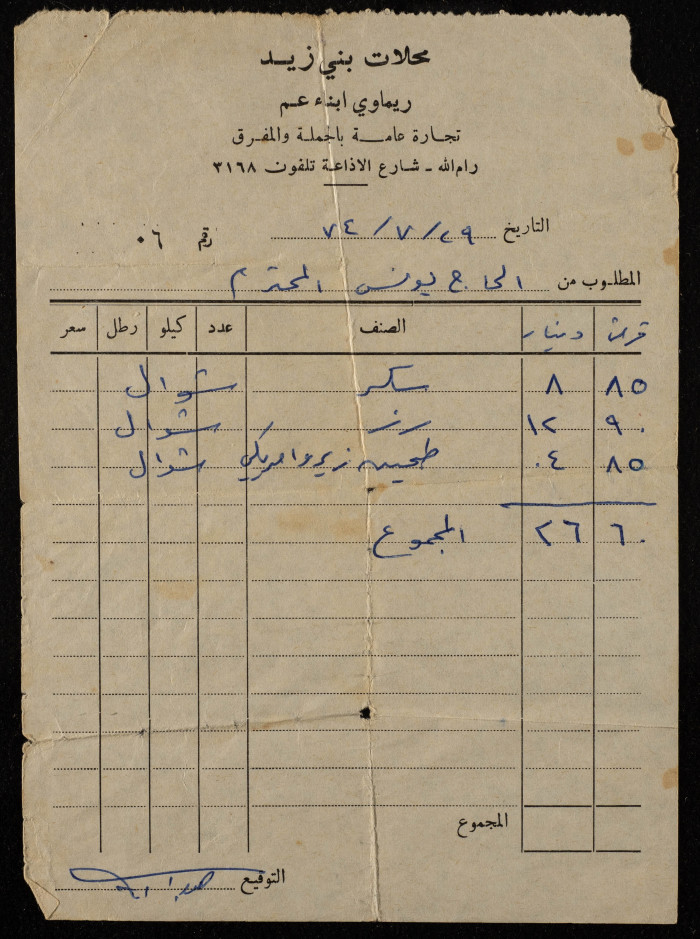 محلات بني زيد
ريماوي ابناء عم
تجارة عامة بالجملة والمفرق
رام الله - شارع الاذاعة تلفون ٣١٦٨
التاريخ ٧٤/٧/٢٩ رقم ٠٦
المطلوب من الحاج يونس المحترم
قرش دينار الصنف عدد كيلو رطل سعر
٨٥ ٨ سكر شوال
٩٠ ١٢ رز شوال
٨٥ ٠٤ طحين زيرو امريكي شوال
٦٠ ٢٦ المجموع
المجموع
التوقيع